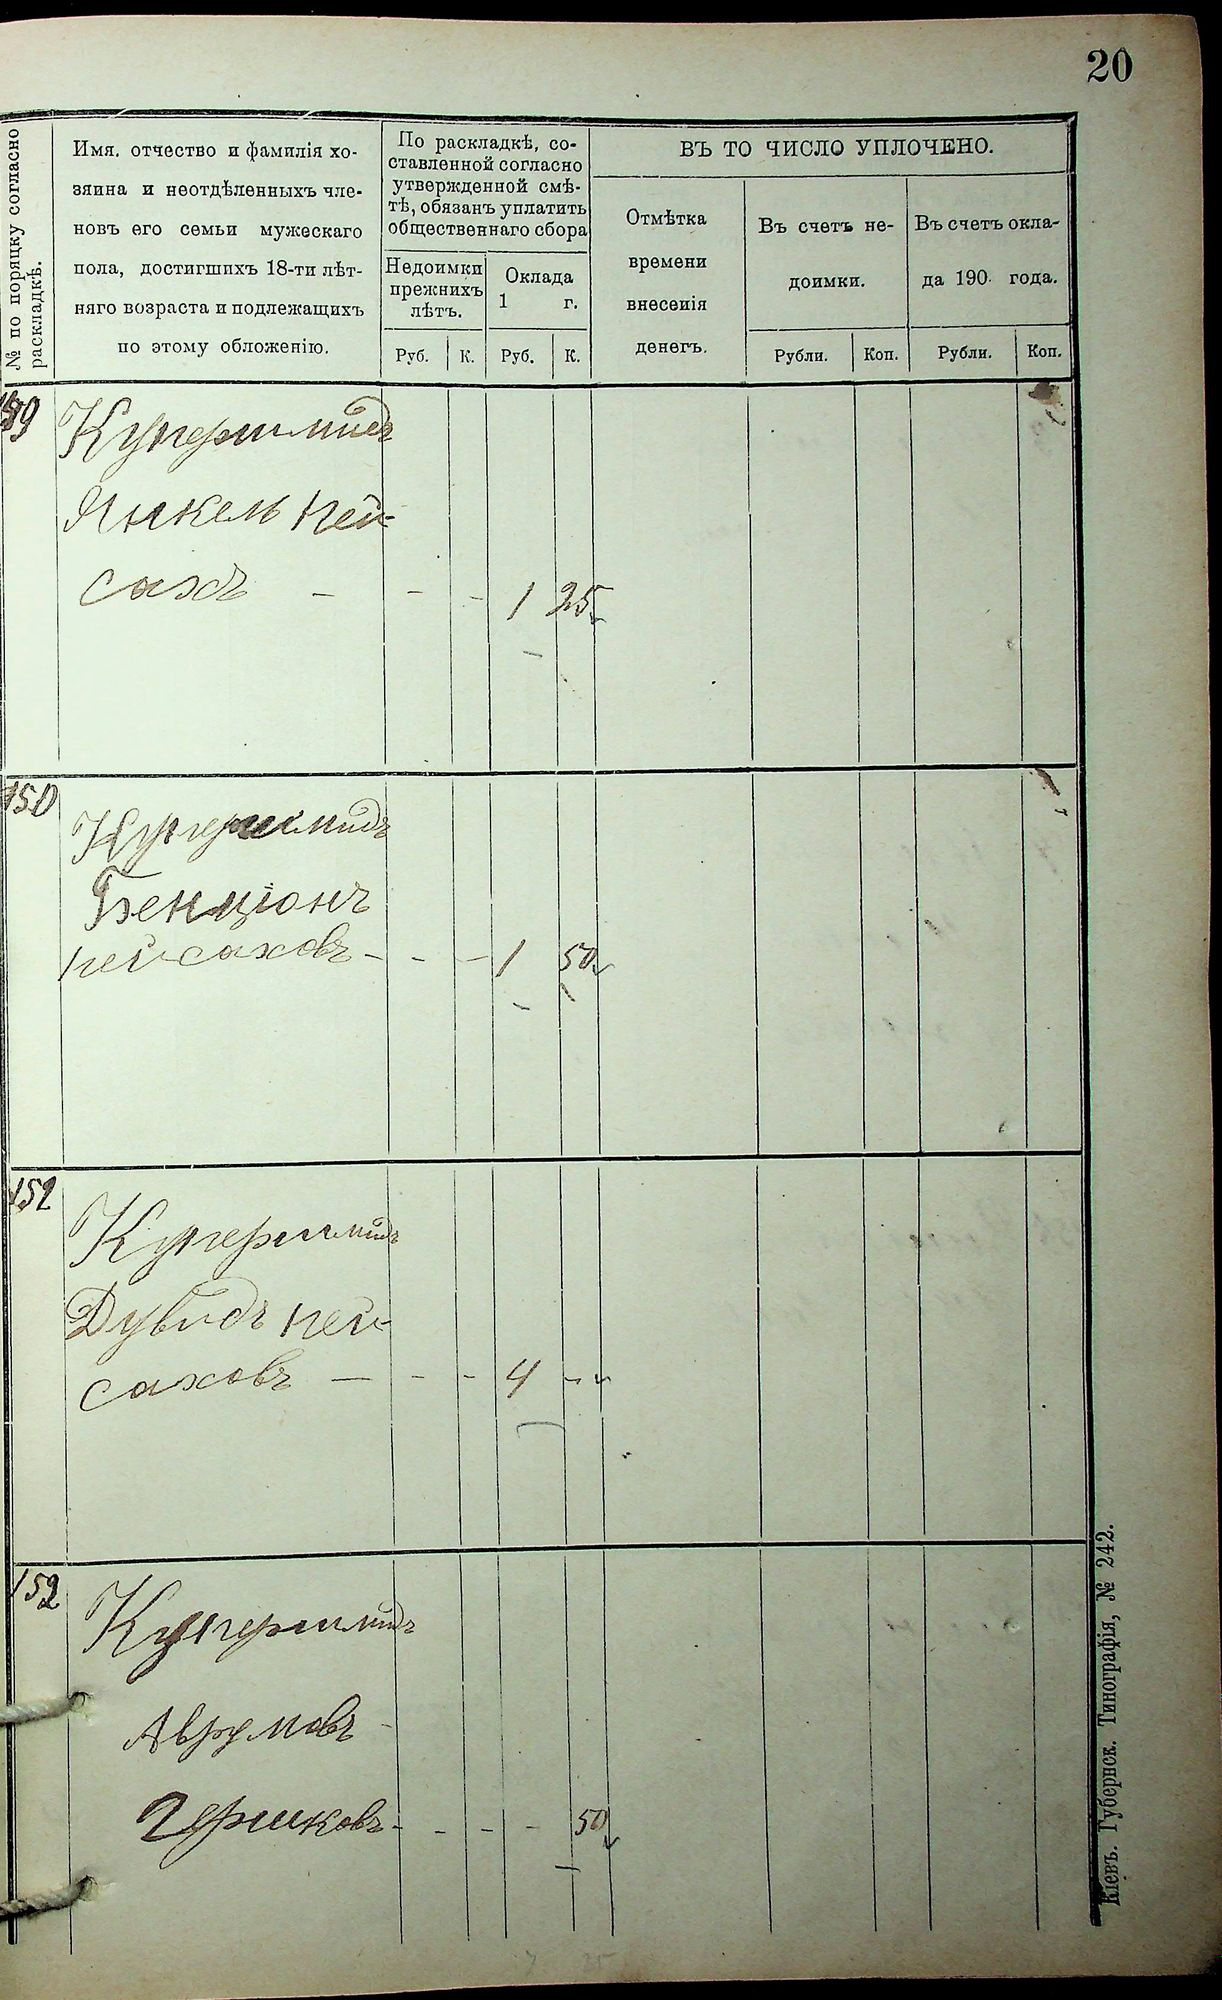 20
№ по поряцку согласно
раскладкѣ.
Имя, отчество и фамилія хо-
зяина и неотдѣленныхъ чле-
новъ его семьи мужескаго
пола, достигшихъ 18-ти лѣт-
няго возраста и подлежащихъ
по этому обложенію.
По раскладкѣ, со-
ставленной согласно
утвержденной смѣ-
тѣ, обязанъ уплатить
общественнаго сбора
Недоимки
прежнихъ
лѣтъ.
Оклада
1 г.
Руб. К. Руб. К.
ВЪ ТО ЧИСЛО УПЛОЧЕНО.
Отмѣтка
времени
внесенія
денегъ.
Въ счетъ не-
доимки.
Рубли. Коп.
Въ счетъ окла-
да 190 года.
Рубли. Коп.
149 Купершмидъ
Янкель Пей-
сахъ - - - 1 25
150 Купершмидъ
Бенціонъ
Пейсаховъ - - - 1 50
151 Купершмидъ
Дувидъ Пей-
саховъ - - - 4 -
152 Купершмидъ
Аврумовъ
Гершковъ - - - - 50
7 25
Кіевъ. Губернск. Типографія, № 242.